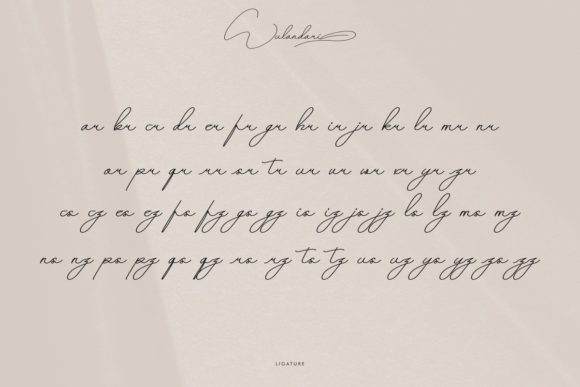 Wulandari
ar br cr dr er fr gr hr ir jr kr lr mr nr
or pr qr rr sr tr ur vr wr xr yr zr
co cz eo ez fo fz go gz io iz jo jz lo lz mo mz
no nz po pz qo qz ro rz to tz uo uz yo yz zo zz
LIGATURE